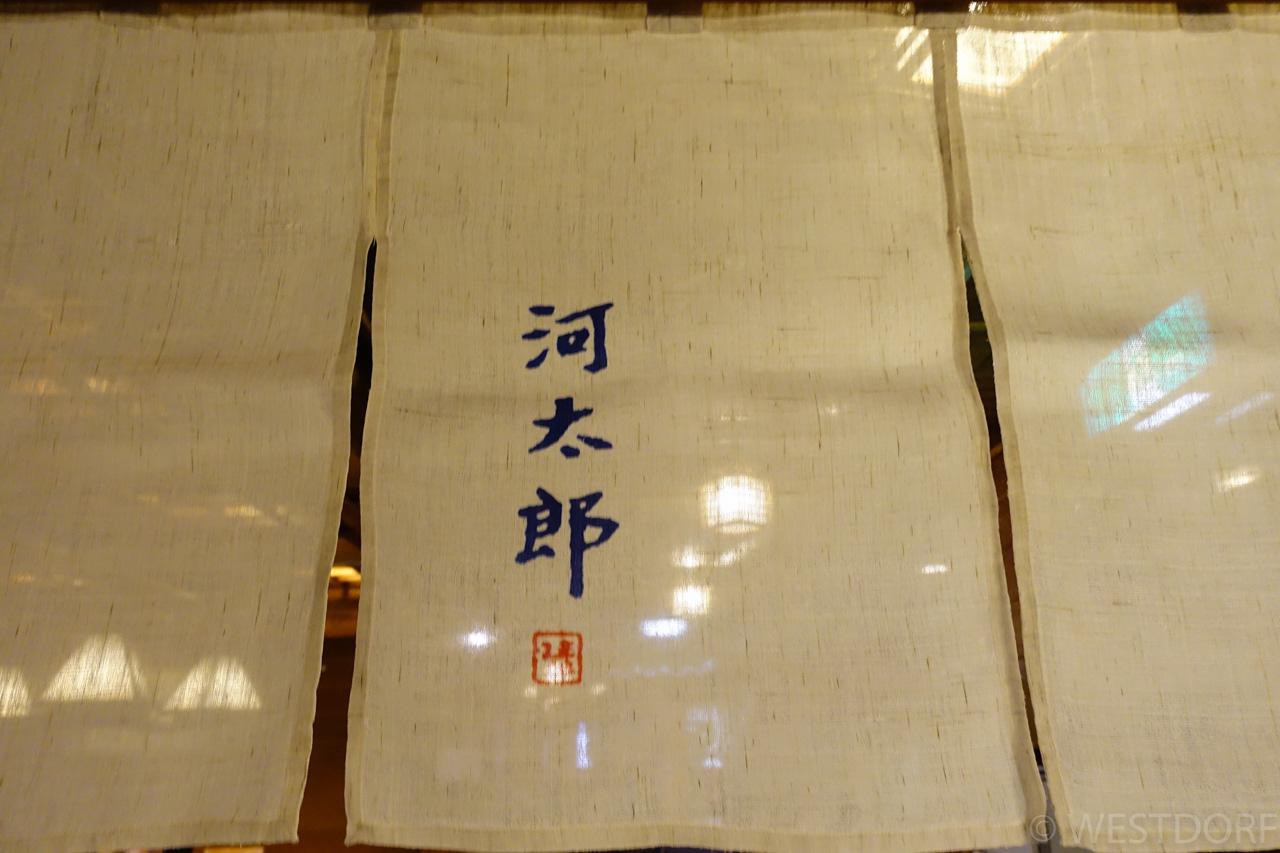 河太郎
© WESTDORF